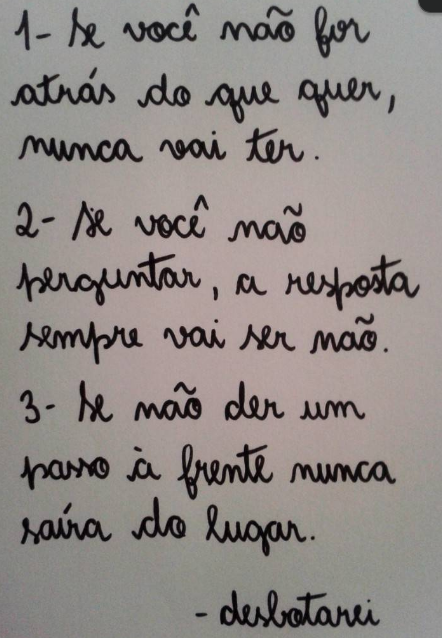 1- Se você não for
atrás do que quer,
nunca vai ter.
2- Se você não
perguntar, a resposta
sempre vai ser não.
3- Se não der um
passo à frente nunca
saíra do lugar.
- desbotarei